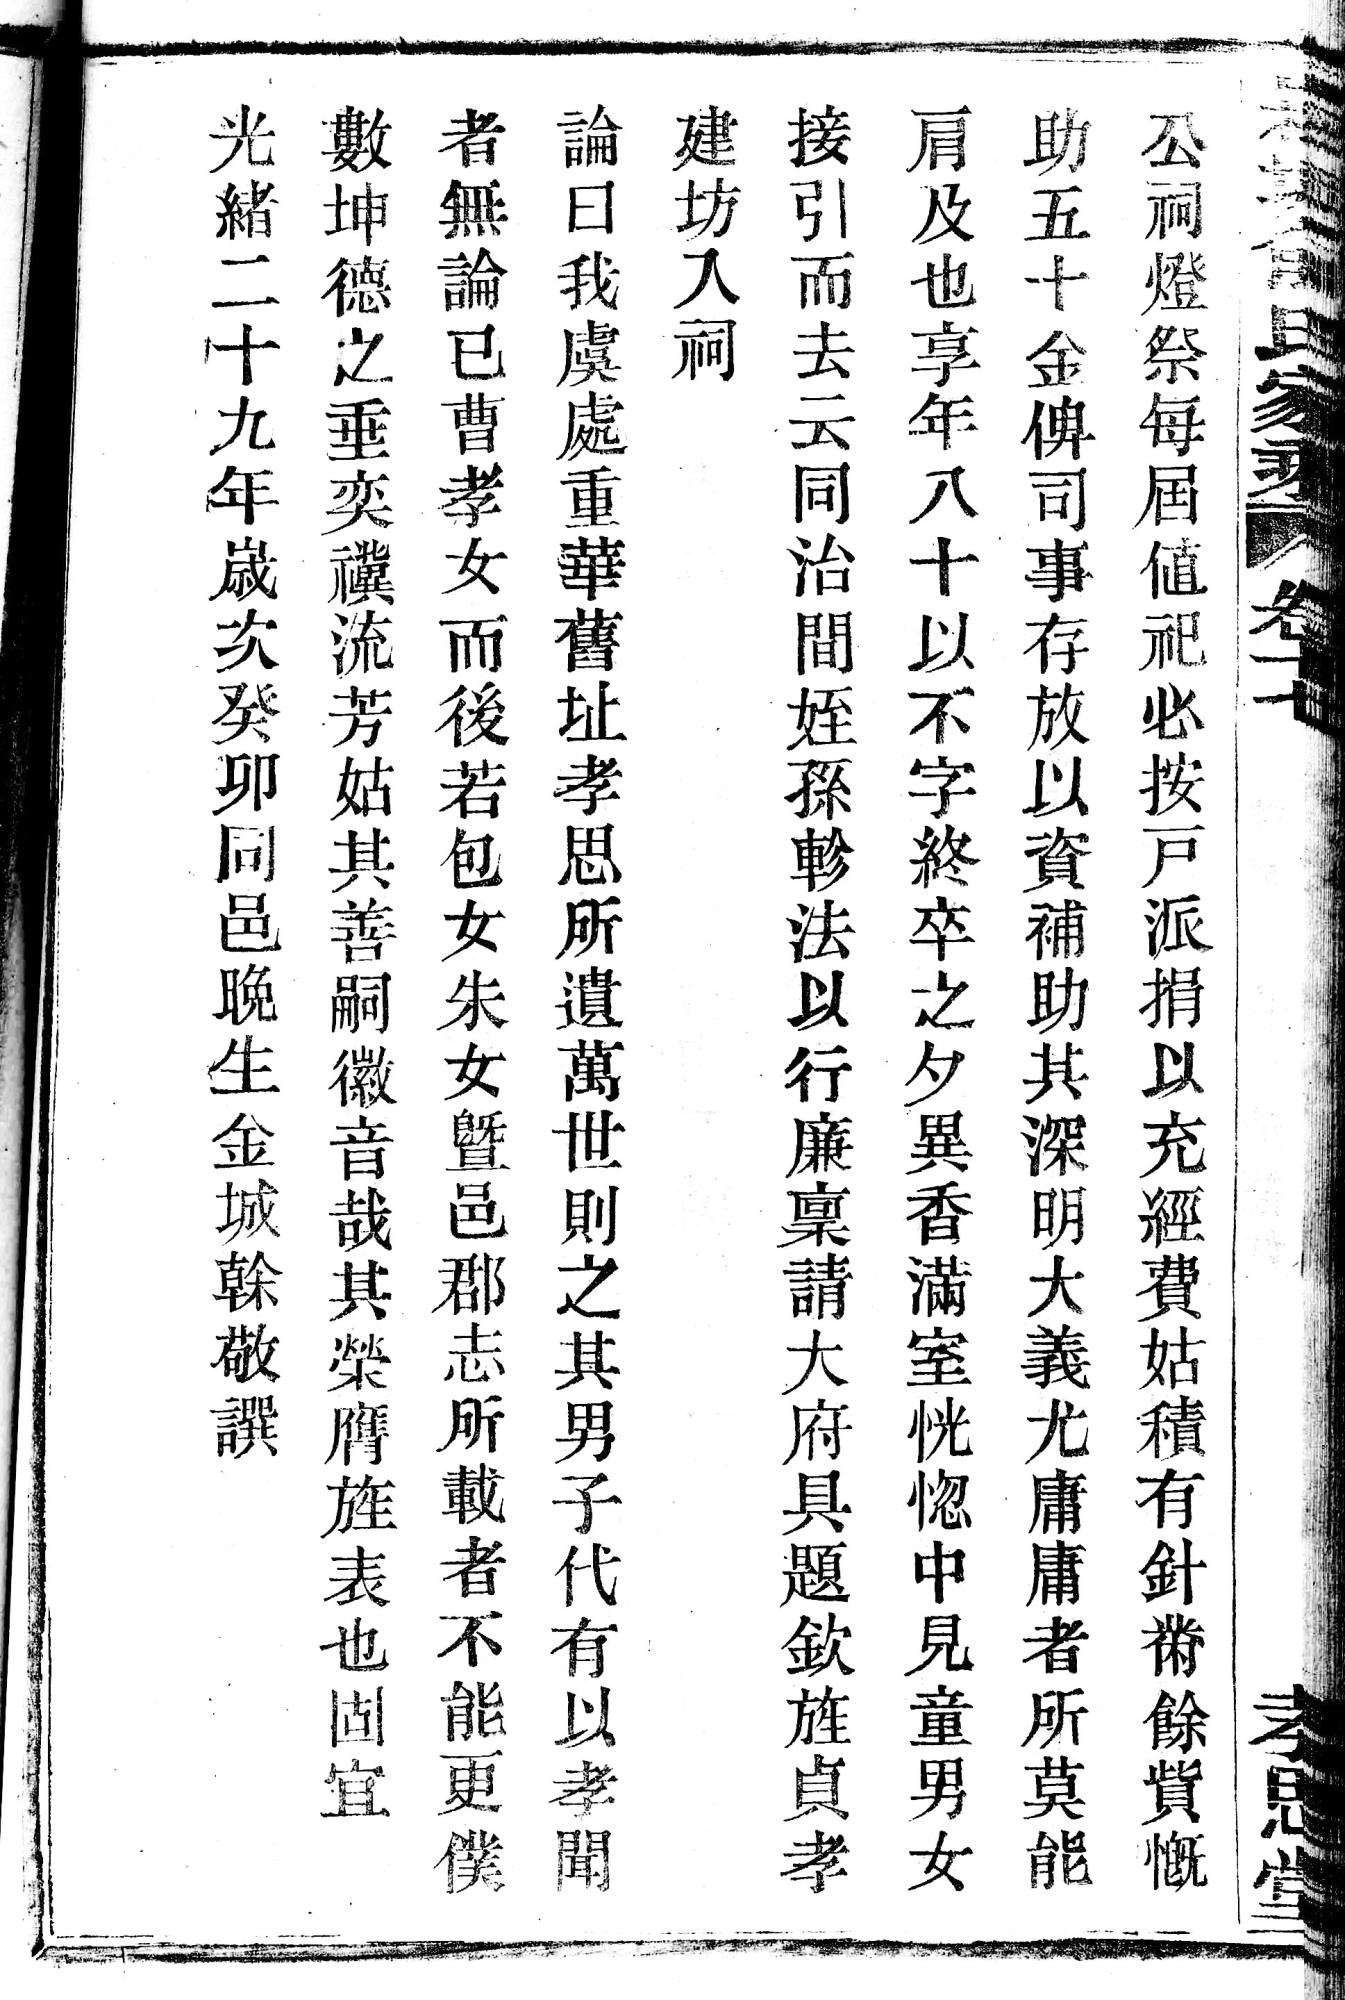 氏家乘
卷十七
孝思堂
公祠燈祭每屆值祀必按戸派捐以充經費姑積有針黹餘貲慨
助五十金俾司事存放以資補助其深明大義尤庸庸者所莫能
肩及也享年八十以不字終卒之夕異香滿室恍惚中見童男女
接引而去云同治間姪孫軫法以行廉稟請大府具題欽旌貞孝
建坊入祠
論曰我虞處重華舊址孝思所遺萬世則之其男子代有以孝聞
者無論已曹孝女而後若包女朱女曁邑郡志所載者不能更僕
數坤德之垂奕禩流芳姑其善嗣徽音哉其榮膺旌表也固宜
光緒二十九年嵗次癸卯同邑晚生金城榦敬譔